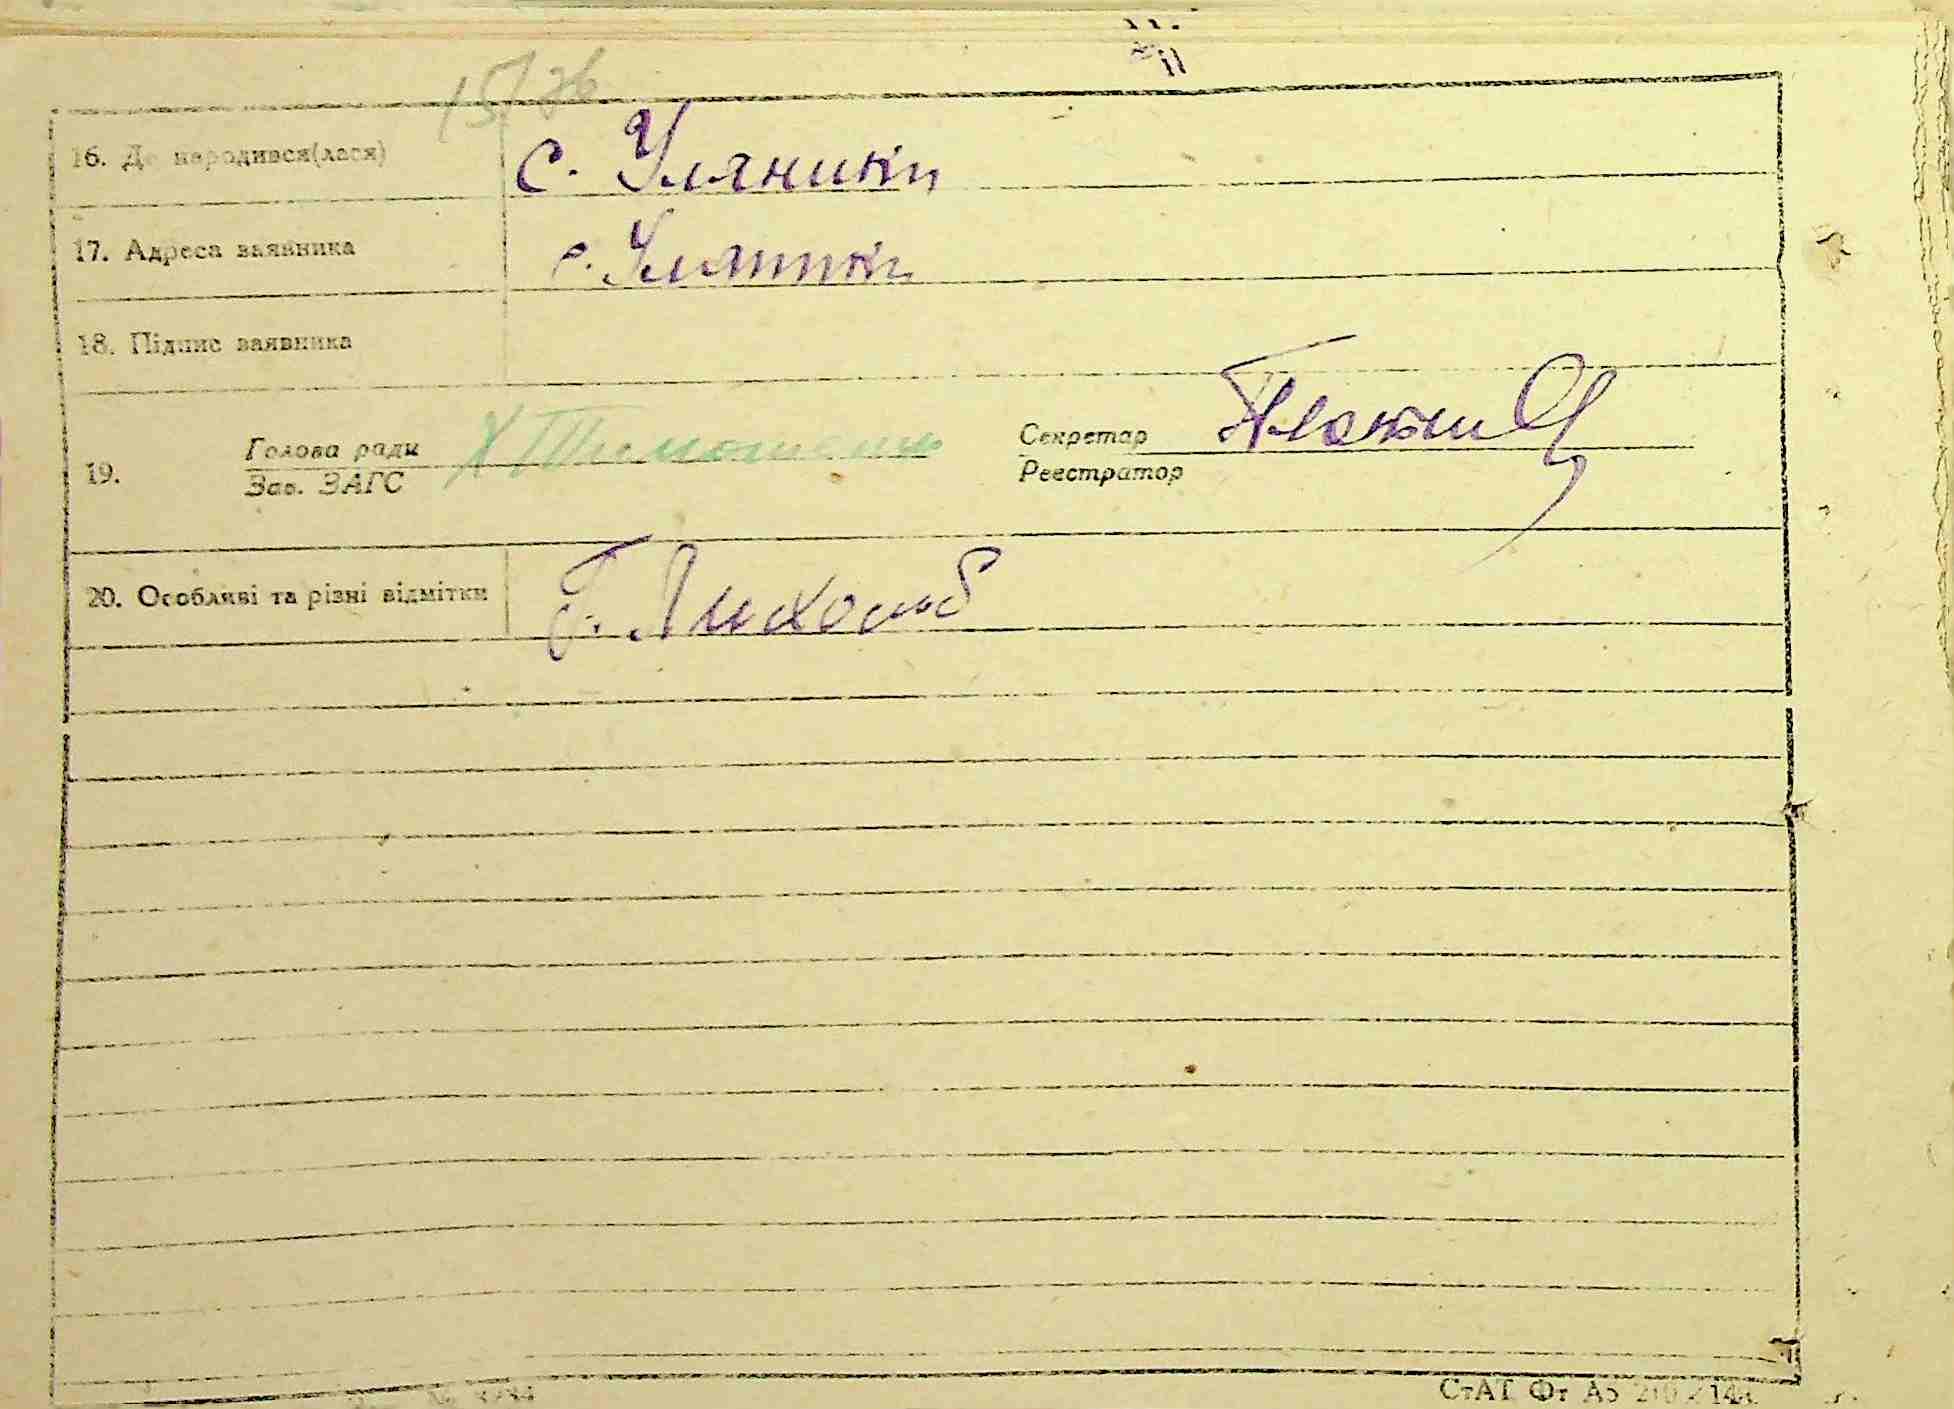 15/26
16. Де народився(лася) с. Уляники
17. Адреса заявника с. Уляники
18. Підпис заявника
19. Голова ради Х Тимошенко Секретар
Зав. ЗАГС Реєстратор
20. Особливі та різні відмітки
№ 3984 СтАТ Фт А5 210×148